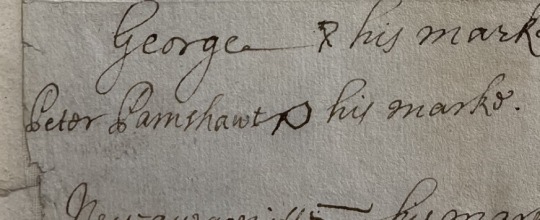 George his marke
Peter Pamshawt his marke.
his mar